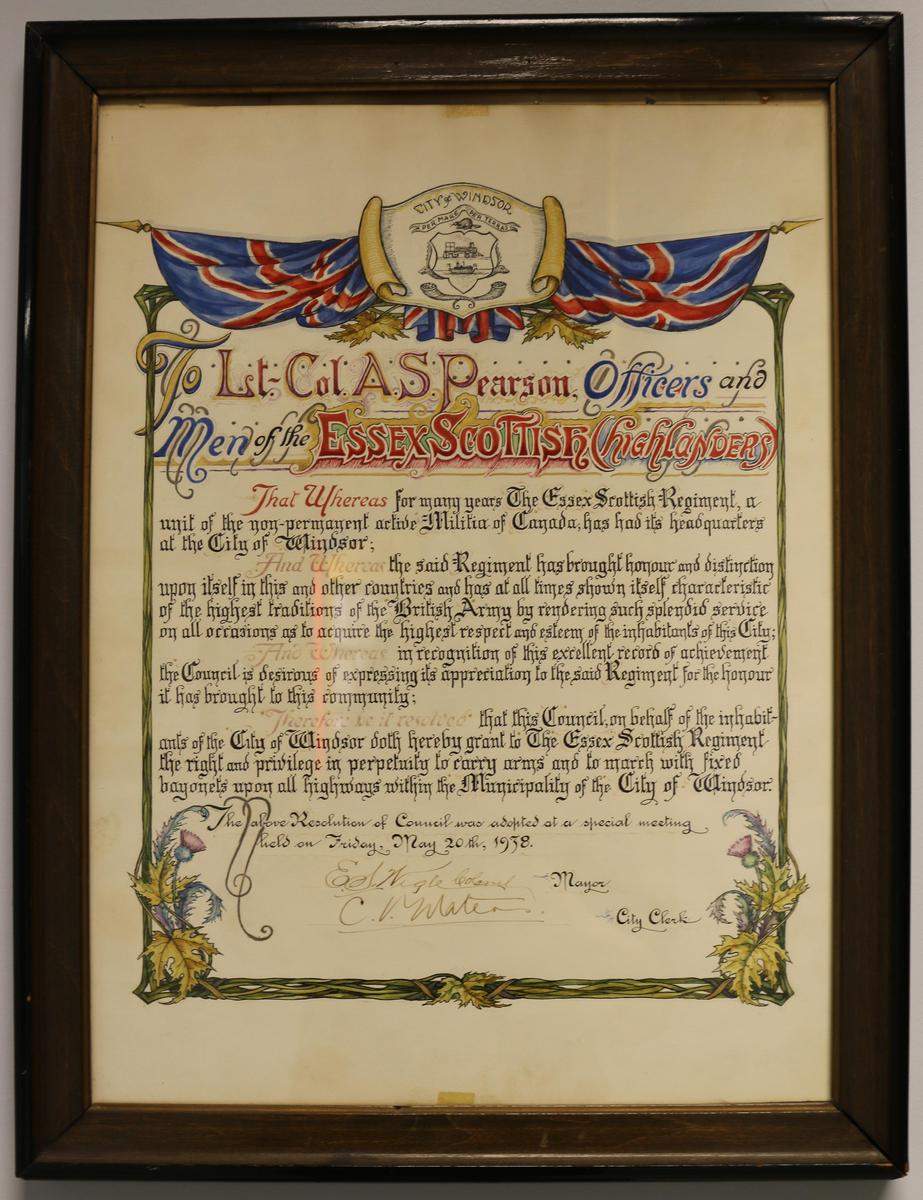 CITY of WINDSOR
PER MARE PER TERRAS
To Lt-Col. A.S. Pearson, Officers and
Men of the ESSEX SCOTTISH (HIGHLANDERS)
That Whereas for many years The Essex Scottish Regiment, a
unit of the non-permanent active Militia of Canada, has had its headquarters
at the City of Windsor;
And Whereas the said Regiment has brought honour and distinction
upon itself in this and other countries and has at all times shown itself characteristic
of the highest traditions of the British Army by rendering such splendid service
on all occasions as to acquire the highest respect and esteem of the inhabitants of this City;
And Whereas in recognition of this excellent record of achievement
the Council is desirous of expressing its appreciation to the said Regiment for the honour
it has brought to this community;
Therefore be it resolved that this Council, on behalf of the inhabit-
ants of the City of Windsor doth hereby grant to The Essex Scottish Regiment
the right and privilege in perpetuity to carry arms and to march with fixed
bayonets upon all highways within the Municipality of the City of Windsor.
The above Resolution of Council was adopted at a special meeting
held on Friday, May 20th, 1938.
E. S. Wigle Colonel Mayor
C. V. Waters. City Clerk